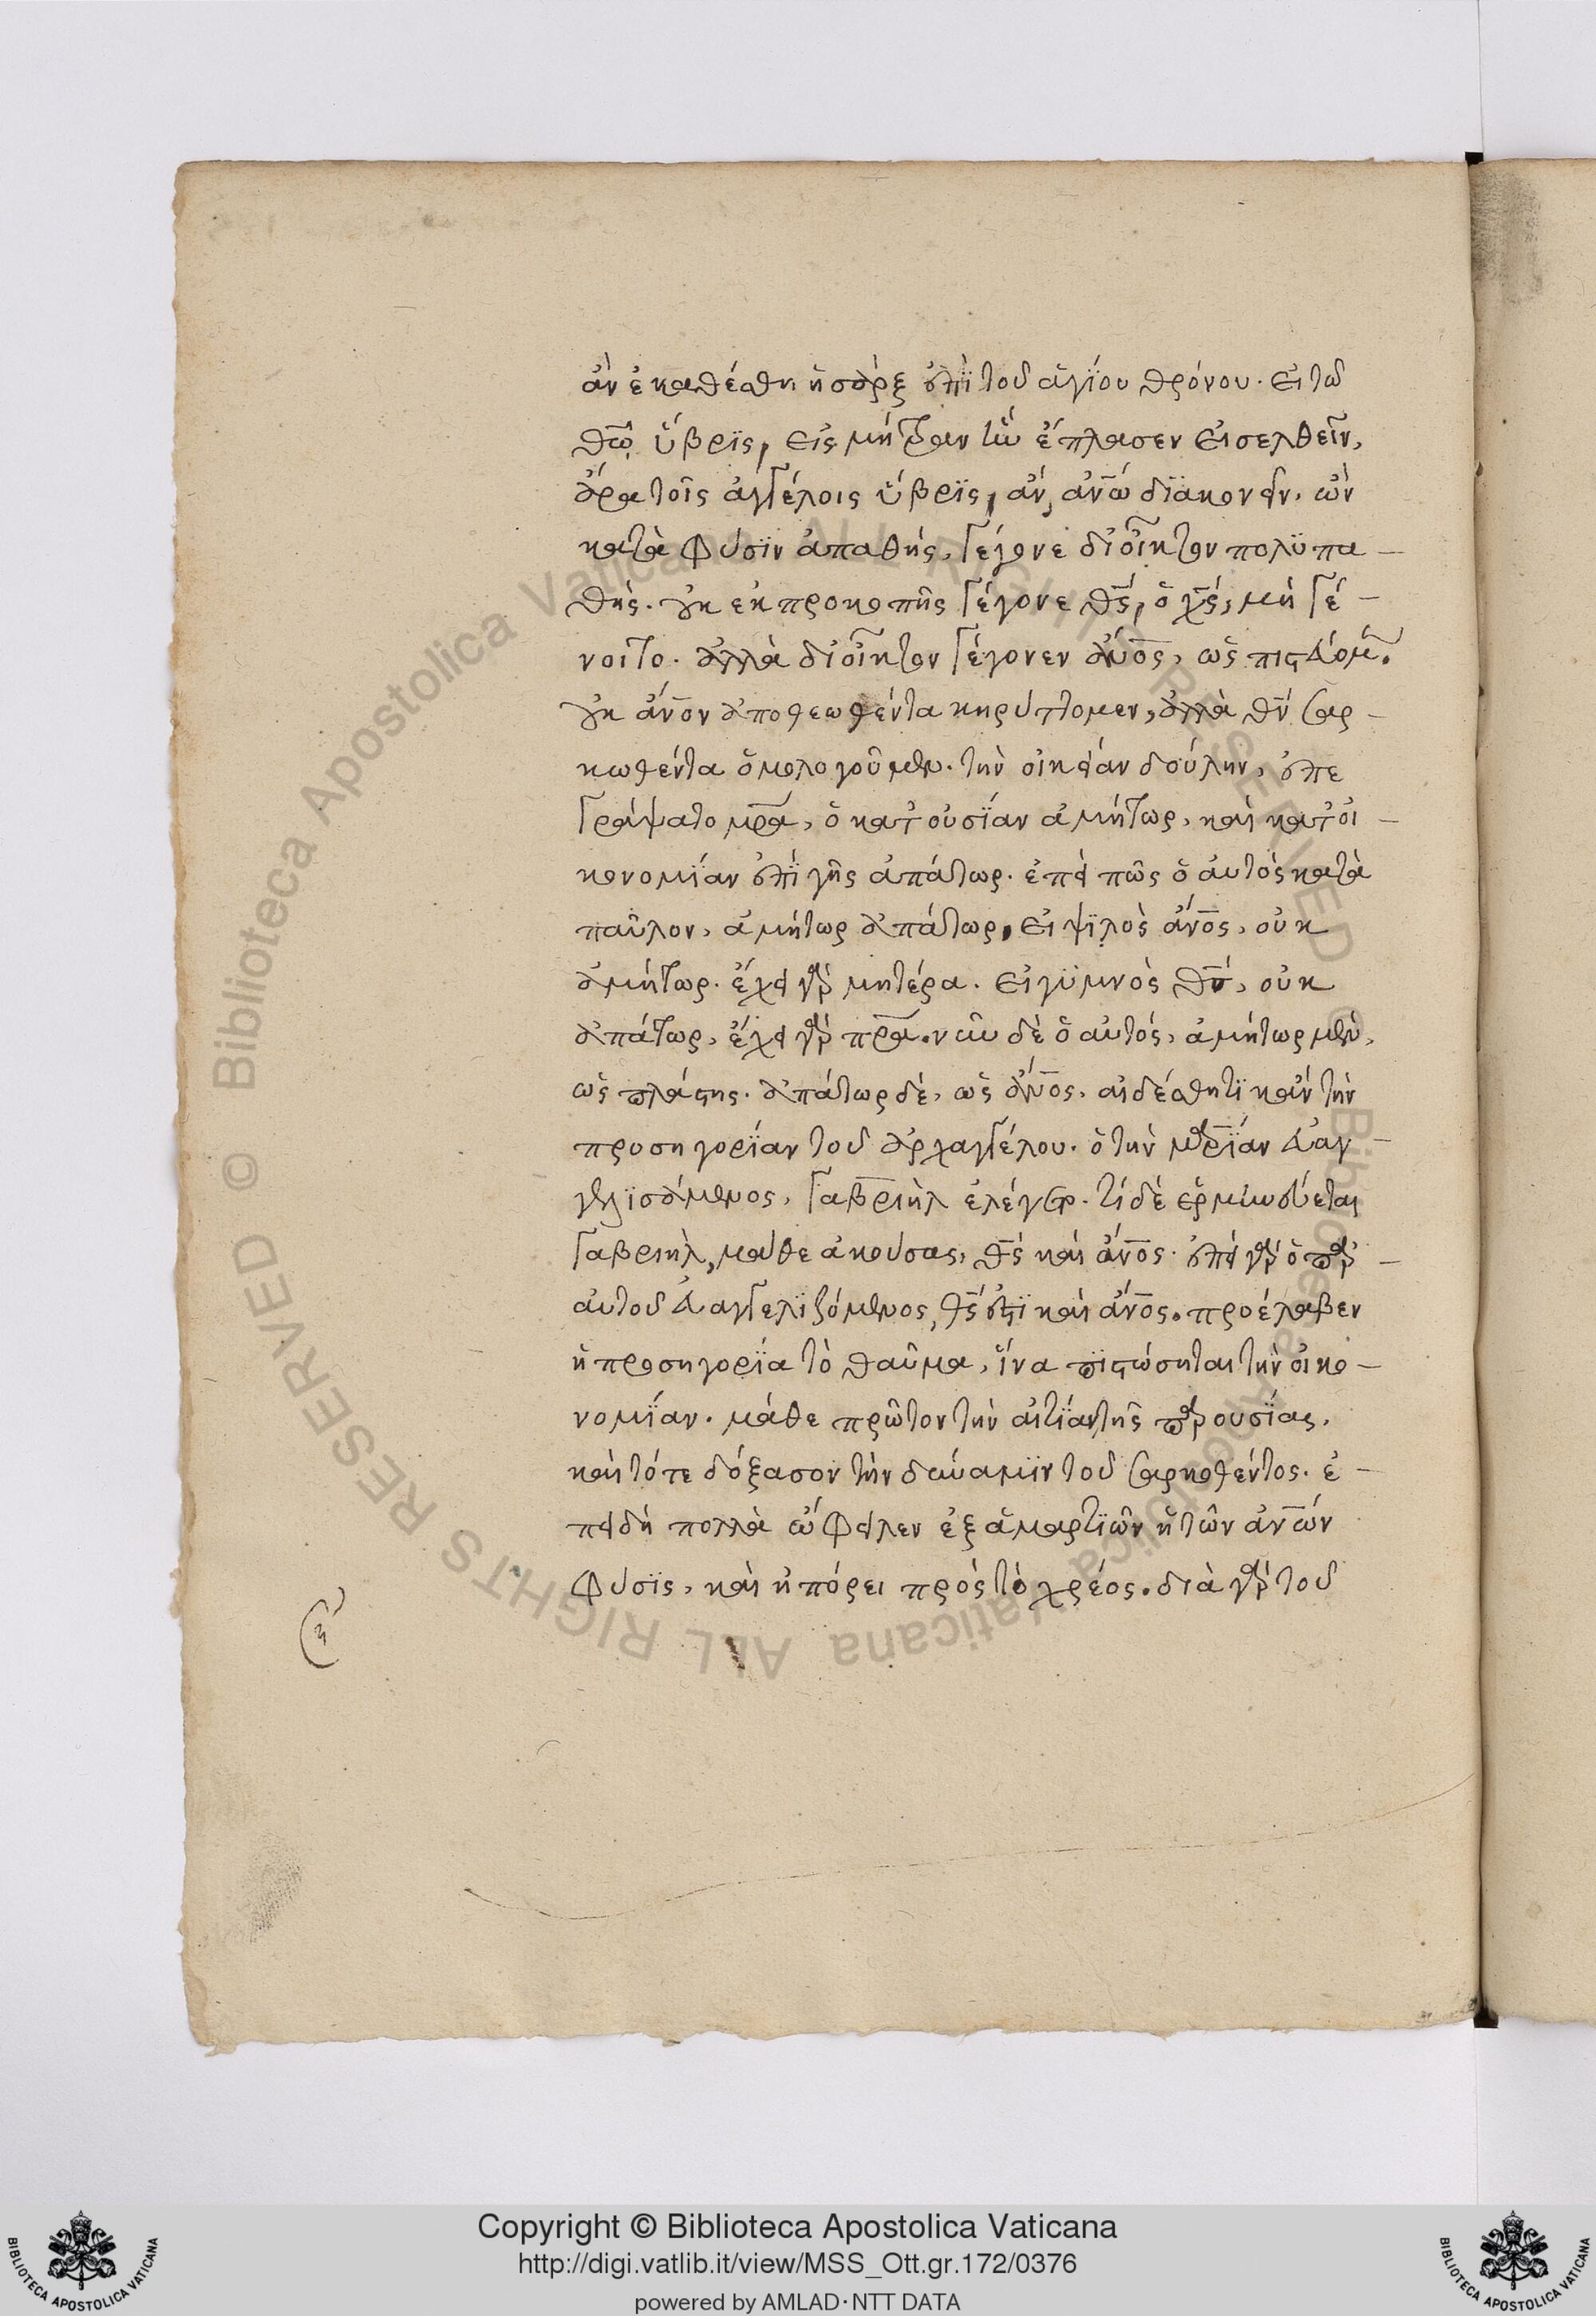 ἂν ἐκαθέσθη ἡ σὰρξ ἐπὶ τοῦ ἁγίου θρόνου. εἰ τῶ
θω̅ ὕβρϊς, εἰς μήτραν ἣν ἔπλασεν εἰσελθεῖν,
ἄρα τοῖς ἀγγέλοις ὕβρϊς, ἀνω̅ διακονεῖν. ὢν
κατὰ φύσϊν ἀπαθής, γέγονε δι' οἶκτον πολϋπα -
θής. οὐκ ἐκ προκοπῆς γέγονε θς̅, ὁ χς̅, μὴ γέ -
νοιτο. ἀλλὰ δι' οἶκτον γέγονεν ἄνο̅ς, ὡς πιστεύομ̅.
οὐκ ἄνο̅ν ἀποθεωθέντα κηρύττομεν, ἀλλὰ θν̅ σαρ -
κωθέντα ὁμολογοῦμεν. τὴν οἰκείαν δούλην, ἐπε
γράψατο μρ̅α, ὁ κατ' οὐσίαν ἀμήτωρ, καὶ κατ' οἰ -
κονομίαν ἐπὶ γῆς ἀπάτωρ. ἐπεὶ πῶς ὁ αὐτὸς κατὰ
παῦλον, ἀμήτωρ ἀπάτωρ, εἰ ψϊλὸς ἄνο̅ς, οὐκ
ἀμήτωρ. ἔχει γὰρ μητέρα. εἰ γϋμνὸς θς̅, οὐκ
ἀπάτωρ, ἔχει γὰρ πρ̅α. νῦν δὲ ὁ αὐτός, ἀμήτωρ μὲν,
ὡς πλάστης. ἀπάτωρ δὲ, ὡς ἄνο̅ς. αἰδέσθητϊ κἂν τὴν
προσηγορίαν τοῦ ἀρχαγγέλου. ὁ τὴν μαρϊάν εὐαγ -
γελϊσάμενος, γαβρϊὴλ ἐλέγετο. τί δὲ ἑρμηνεύεται
γαβριὴλ, μάθε ἀκούσας, θς̅ καὶ ἄνο̅ς. ἐπεὶ γὰρ ὁ παρ' -
αὐτοῦ εὐαγγελϊζόμενος, θς̅ ἐστϊ καὶ ἄνο̅ς. προέλαβεν
ἡ προσηγορία τὸ θαῦμα, ἵνα πϊστώσηται τὴν οἰκο -
νομίαν. μάθε πρῶτον τὴν αἰτίαν τῆς παρουσίας,
καὶ τότε δόξασον τὴν δύναμϊν τοῦ σαρκωθέντος. ἐ -
πειδὴ πολλὰ ὤφειλεν ἐξ ἁμαρτϊῶν ἡ τῶν ἀνω̅ν
φύσϊς, καὶ ἠπόρει πρὸς τὸ χρέος. διὰ γὰρ τοῦ
Copyright © Biblioteca Apostolica Vaticana
http://digi.vatlib.it/view/MSS_Ott.gr.172/0376
powered by AMLAD·NTT DATA